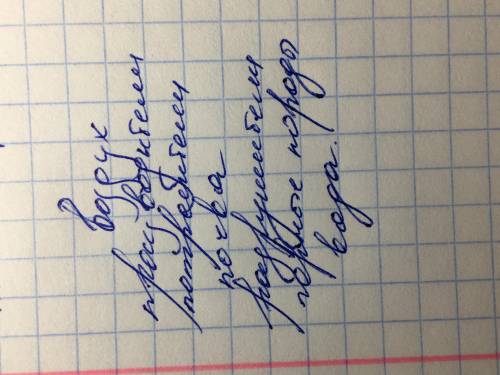 Воздух
производители
потребители
почва
разрушители
горные породы
вода.